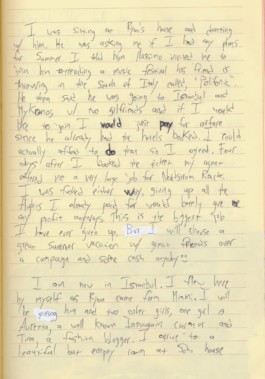 I was sitting on Ryan's house and chatting
w/ him. He was asking me if I had any plans
for Summer. I told him Plastic invited me to
join him attending a music festival his friend is
throwing in the South of Italy called "Polifonic"
He then said he was going to Istanbul and
Mykonos w/ two girlfriends and if I would
like to join I would just pay for airfare
since he already had the hotels booked. I could
actually afford to do that so I agreed. Four
days after I booked the ticket my agent
offered me a very large job for
I was fucked either way, giving up all the
flights I already paid for would barely give me
any profit anyways. This is the biggest job
I have ever given up. But I will choose a
great Summer vacation w/ great friends over
a campaign and some cash anyday!!
I am now in Istanbul. I flew here
by myself as Ryan came from Miami. I will
be joining him and two other girls, one girl is
a well known Instagram curator and
Tina, a fashion blogger. I arrive to a
beautiful but empty room at Soho house